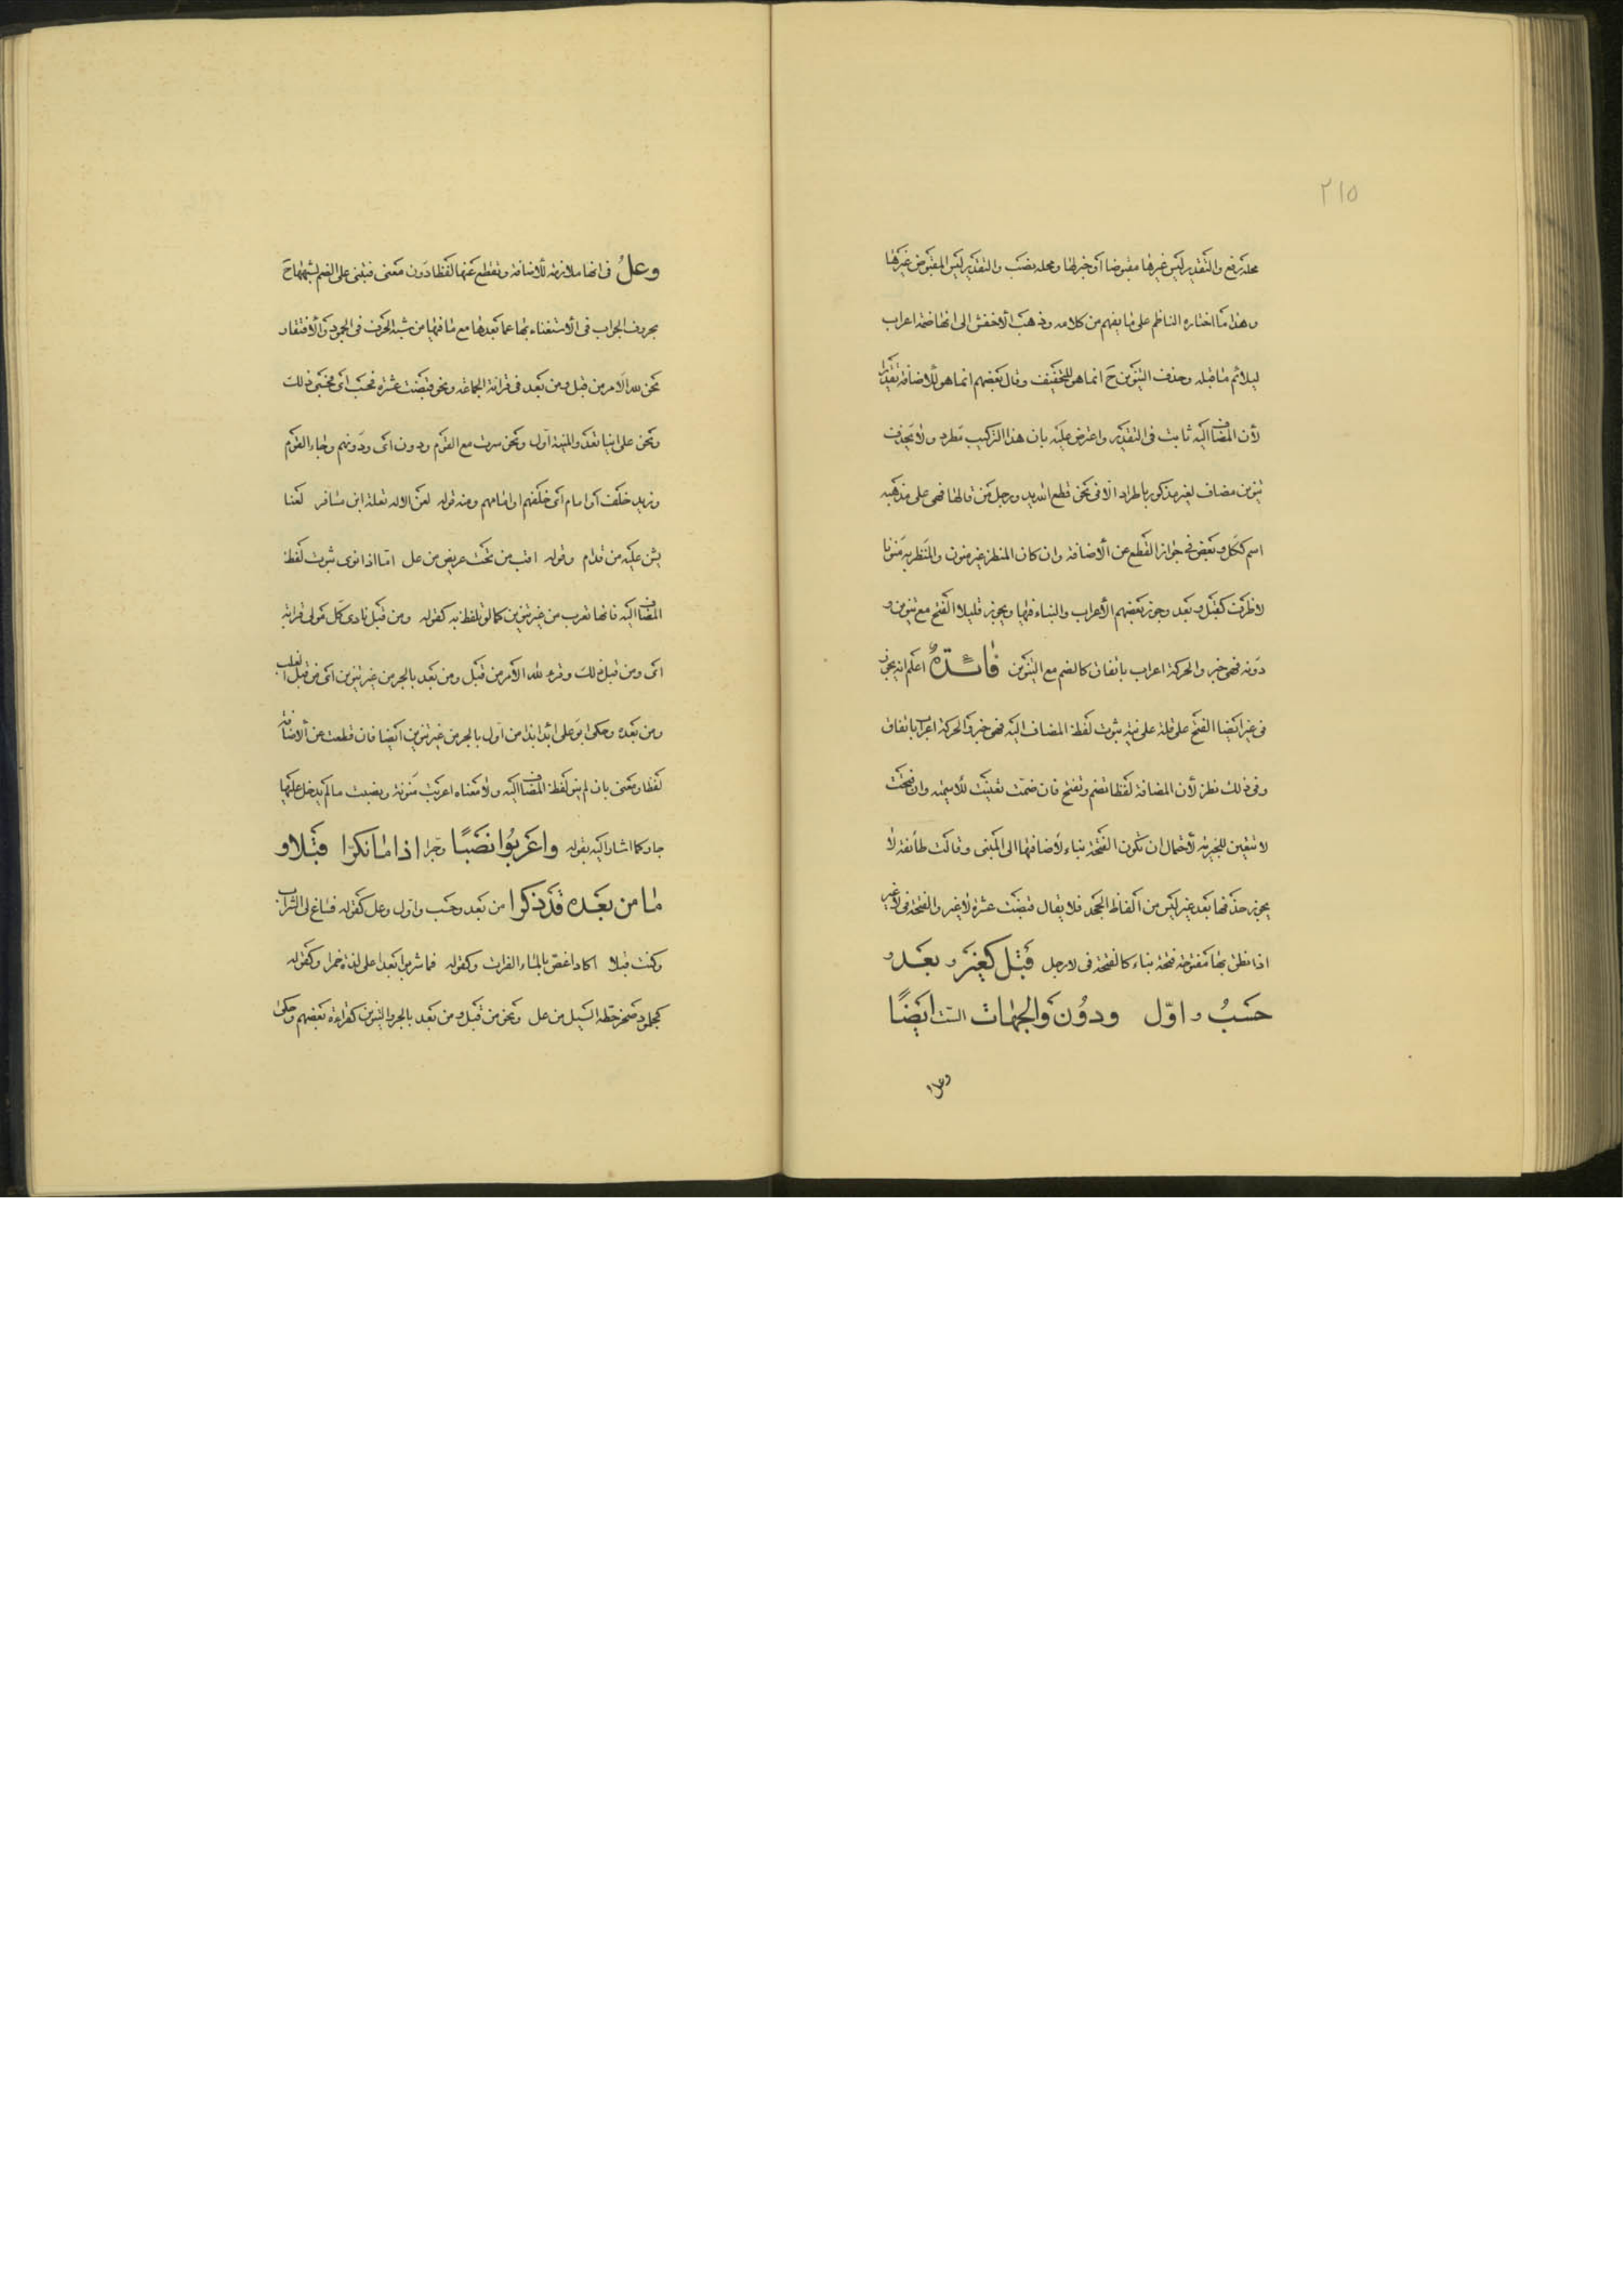 ٢١٥
محله رفع والتقدير ليس غيرها مقبوضا او خبر لها ومحله نصب والتقدير ليس المقبوض غيرها
وهذا ما اختاره الناظم على ما يفهم من كلامه وذهب الأخفش الى انها ضمة اعراب
ليلائم ما قبله وحذف التنوين ح انما هى للتخفيف وقال بعضهم انما هى للاضافة تقديرا
لأن المضاف اليه ثابت فى التقدير واعترض عليه بان هذا التركيب مطرد ولا يحذف
تنوين مضاف لغير مذكور باطراد الا فى نحو قطع الله يد ورجل من قالها فهى على مذهبه
اسم ككل وبعض فى جواز القطع عن الأضافة وان كان المنظر غير منون والمنظر به منونا
لا ظرف كقبل وبعد وجوز بعضهم الأعراب والبناء فيها ويجوز قليلا الفتح مع تنوين و
دونه فهى خبر والحركة اعراب باتفاق كالضم مع التنوين فائدة اعلم انه يجوز
فى غير ايضا الفتح على قلة على نية ثبوت لفظ المضاف اليه فهى خبر والحركة اعراب باتفاق
وفى ذلك نظر لأن المضافة لفظا تضم وتفتح فان ضمت تعينت للأسمية وان فتحت
لا تتعين للخبرية لأحتمال ان تكون الفتحة بناء لأضافتها الى المبنى وقالت طائفة لا
يجوز حذفها بعد غير ليس من الفاظ الجحد فلا يقال قبضت عشرة لا غير والفتحة فى لا غير
اذا نطق بها مفتوحة فتحة بناء كالفتحة فى لا رجل قبل كغير و بعد و
حسب و اوّل ودون والجهات الست ايضًا
وعل
وعلُ فانها ملازمة للأضافة وتقطع عنها لفظا دون معنى فتبنى على الضم لشبهها ح
بحروف الجواب فى الأستغناء بها عما بعدها مع ما فيها من شبه الحرف فى الجمود والأفتقار
نحو لله الأمر من قبل ومن بعد فى قراءة الجماعة ونحو قبضت عشرة فحسب اى فحسبى ذلك
ونحو على اينا تعدو المنية اول ونحو سرت مع القوم ودون اى ودونهم وجاء القوم
وزيد خلف او امام اى خلفهم او امامهم ومنه قوله لعن الاله تعلة ابن مسافر لعنا
يشن عليه من قدام وقوله اقب من تحت عريض من عل اما اذا نوى ثبوت لفظ
المضاف اليه فانها تعرب من غير تنوين كما لو تلفظ به كقوله ومن قبل نادى كل مولى قرابة
اى ومن قبل ذلك وقرء لله الأمر من قبل ومن بعد بالجر من غير تنوين اى من قبل الغلب
ومن بعده وحكى ابو على ابدأ بذا من اول بالجر من غير تنوين ايضا فان قطعت عن الأضافة
لفظا ومعنى بان لم ينو لفظ المضاف اليه ولا معناه اعربت منونة ونصبت ما لم يدخل عليها
جار كما اشار اليه بقوله واعربُوا نصبًا وجرا اذا ما نكرا قبلا و
ما من بعده قد ذكرا من بعد وحسب واول وعل كقوله فساغ لى الشراب
وكنت قبلا اكاد اغص بالماء الفرات وكقوله فما شربوا بعدا على لذة خمرا وكقوله
كجلمود صخر حطه السيل من عل ونحو من قبل ومن بعد بالجر والتنوين كقراءة بعضهم وحكى